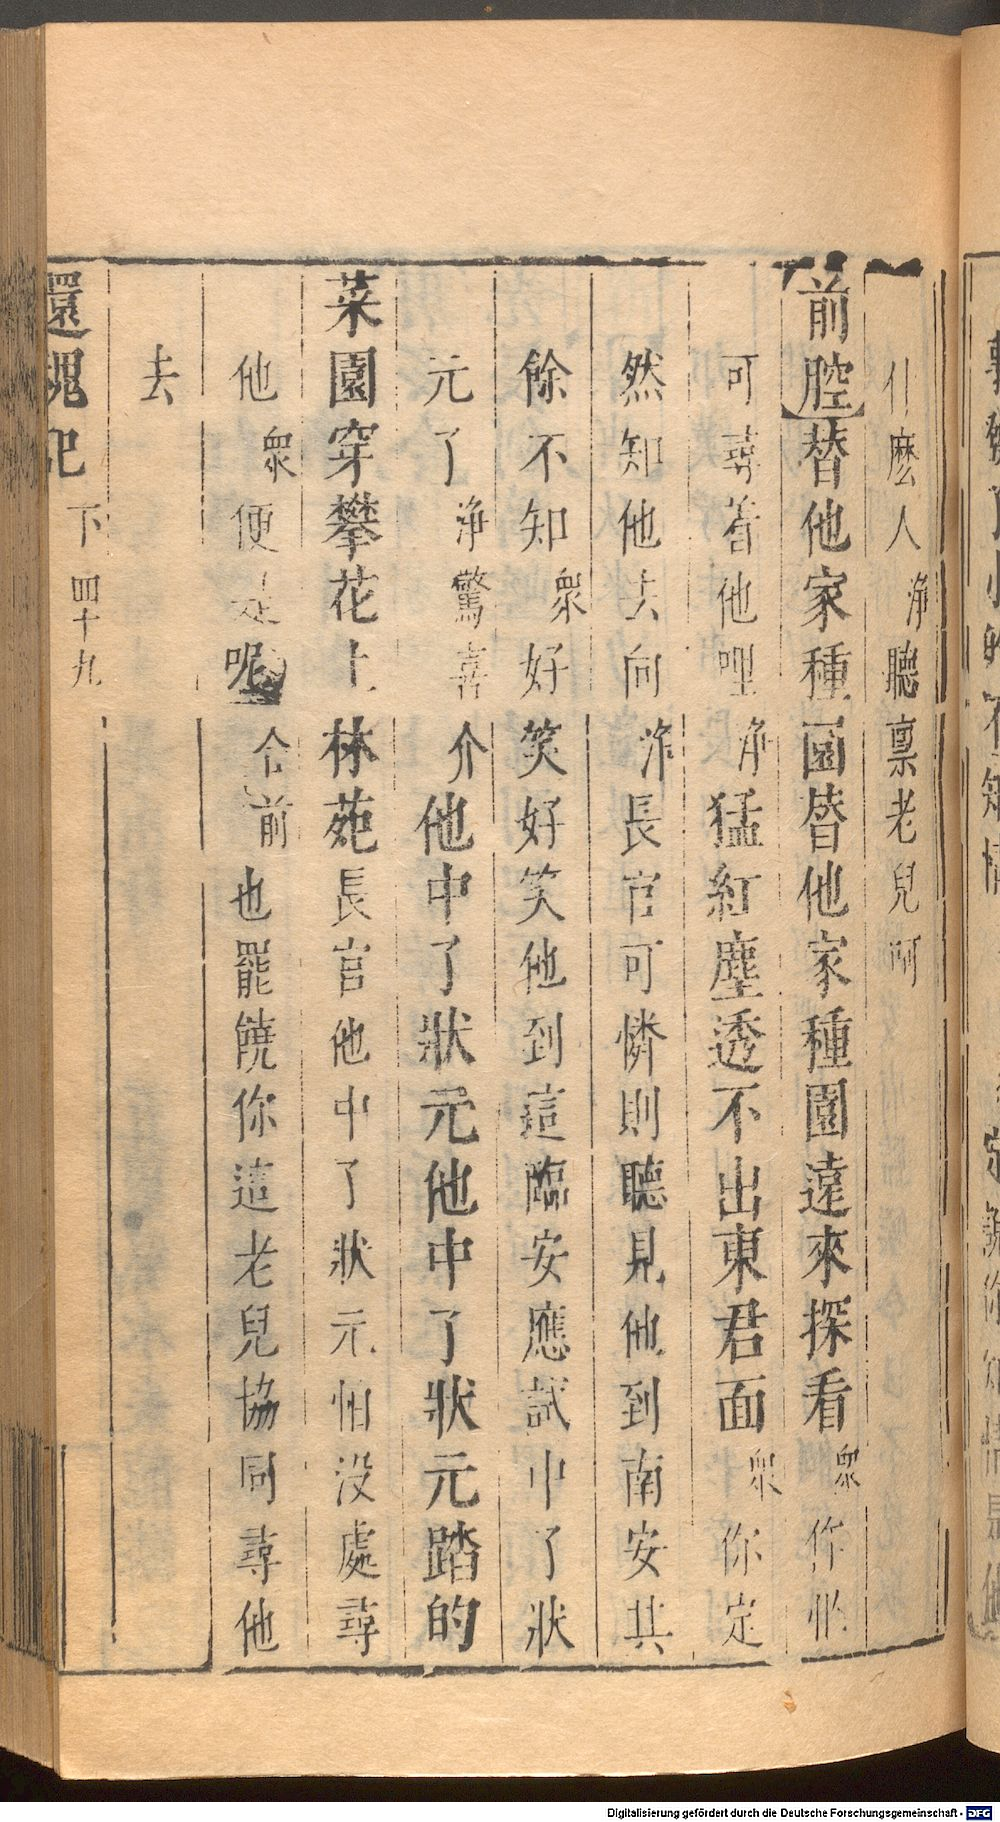 什麽人淨聽稟老兒呵
前腔替他家種園替他家種園遠來探看衆你怕
可尋着他哩淨猛紅塵透不出東君面衆你定
然知他去向淨長官可憐則聽見他到南安其
餘不知衆好笑好笑他到這臨安應試中了狀
元了淨驚喜介他中了狀元他中了狀元踏的
菜園穿攀花上林苑長官他中了狀元怕没處尋
他衆便是呢合前也罷饒你這老兒協同尋他
去
還魂記 下 四十九
Digitalisierung gefördert durch die Deutsche Forschungsgemeinschaft - DFG